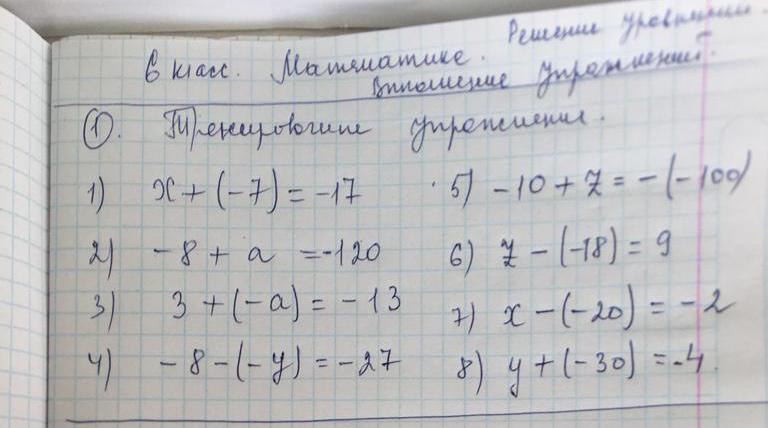 6 класс. Математика. Решение уравнений.
Выполнение упражнений.
①. Тренировочные упражнения.
1) x + (-7) = -17
2) -8 + a = -120
3) 3 + (-a) = -13
4) -8 - (-y) = -27
5) -10 + z = -(-100)
6) z - (-18) = 9
7) x - (-20) = -2
8) y + (-30) = -4.